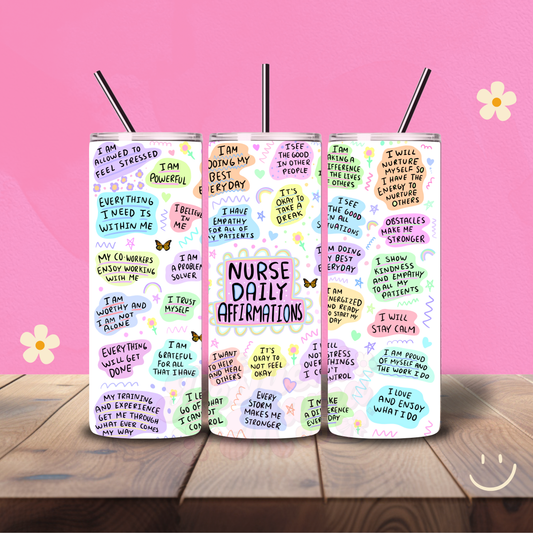 I AM
ALLOWED TO
FEEL STRESSED
I AM
POWERFUL
EVERYTHING
I NEED IS
WITHIN ME
I BELIEVE
IN
ME
MY CO-WORKERS
ENJOY WORKING
WITH ME
I AM
A PROBLEM
SOLVER
I AM
WORTHY AND
I AM NOT
ALONE
I TRUST
MYSELF
EVERYTHING
WILL GET
DONE
I AM
GRATEFUL
FOR ALL
THAT I HAVE
MY TRAINING
AND EXPERIENCE
GET ME THROUGH
WHAT EVER COMES
MY WAY
I LE
GO OF
I CAN
CO
I AM
DOING MY
BEST
EVERYDAY
I SEE
THE GOOD
IN OTHER
PEOPLE
I HAVE
EMPATHY
FOR ALL OF
MY PATIENTS
IT'S
OKAY TO
TAKE A
BREAK
NURSE
DAILY
AFFIRMATIONS
I WANT
TO HELP
AND HEAL
OTHERS
IT'S
OKAY TO
NOT FEEL
OKAY
HAT
NOT
ROL
EVERY
STORM
MAKES ME
STRONGER
I AM
AKING A
DIFFERENCE
THE LIVES
OTHERS
I WILL
NURTURE
MYSELF SO
I HAVE THE
ENERGY TO
NURTURE
OTHERS
I SEE
THE GOOD
IN ALL
SITUATIONS
OBSTACLES
MAKE ME
STRONGER
AM DOING
MY BEST
EVERYDAY
I SHOW
KINDNESS
AND EMPATHY
TO ALL MY
PATIENTS
I AM
ENERGIZED
AND READY
TO START MY
DAY
I WILL
STAY CALM
I AM PROUD
OF MYSELF AND
THE WORK I DO
I LOVE
AND ENJOY
WHAT I DO